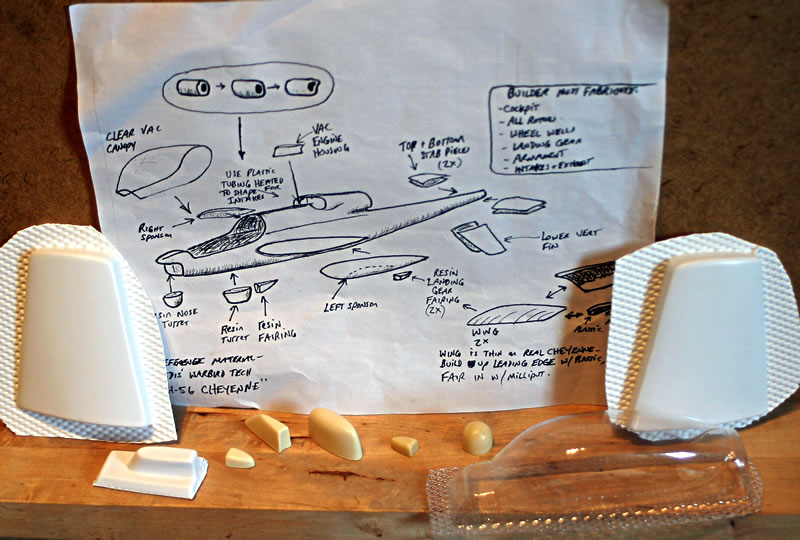 CLEAR VAC
CANOPY
VAC
ENGINE
HOUSING
USE PLASTIC
TUBING HEATED
TO SHAPE FOR
INTAKES
TOP + BOTTOM
STAB PIECES
(2X)
BUILDER MUST FABRICATE:
-COCKPIT
- ALL ROTORS
- WHEEL WELLS
- LANDING GEAR
- ARMAMENT
- INTAKES + EXHAUST
RIGHT
SPONSON
LOWER VERT
FIN
RESIN
LANDING
GEAR
FAIRING
(2X)
LEFT SPONSON
SIN NOSE
TURRET
RESIN
TURRET
RESIN
FAIRING
WING
2X
PLASTIC
EFERENCE MATERIAL-
DIS' WARBIRD TECH
H-56 CHEYENNE"
WING IS THIN ON REAL CHEYENNE-
BUILD UP LEADING EDGE W/PLASTIC,
FAIR IN W/MILLIPUT.